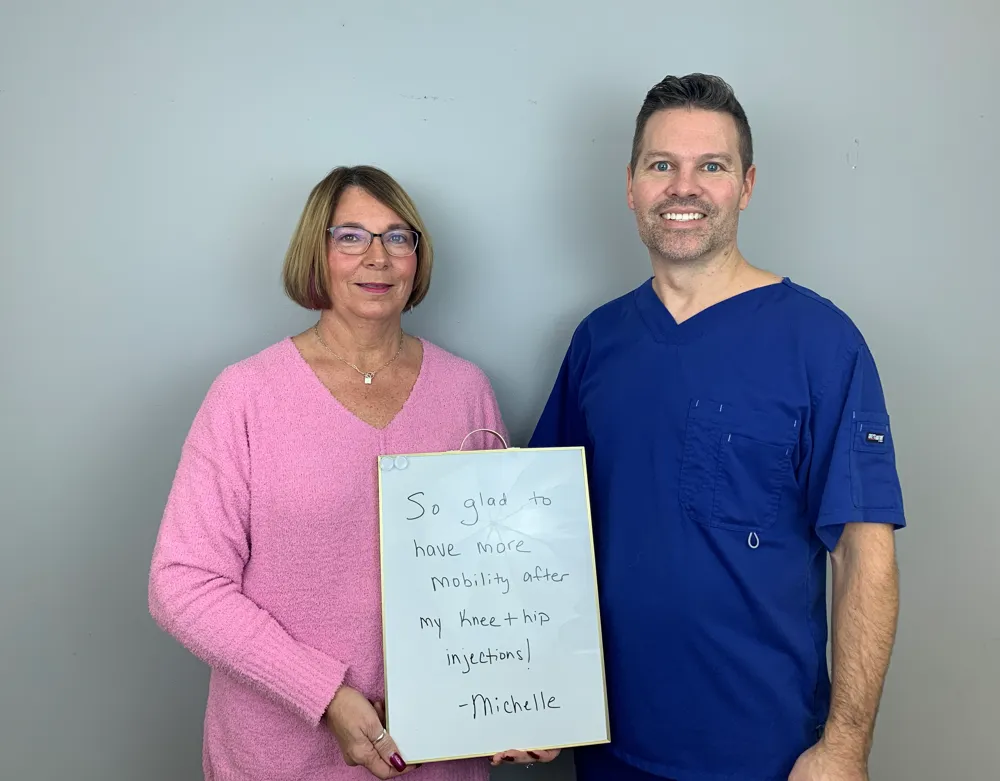 So glad to
have more
mobility after
my Knee + hip
injections!
-Michelle